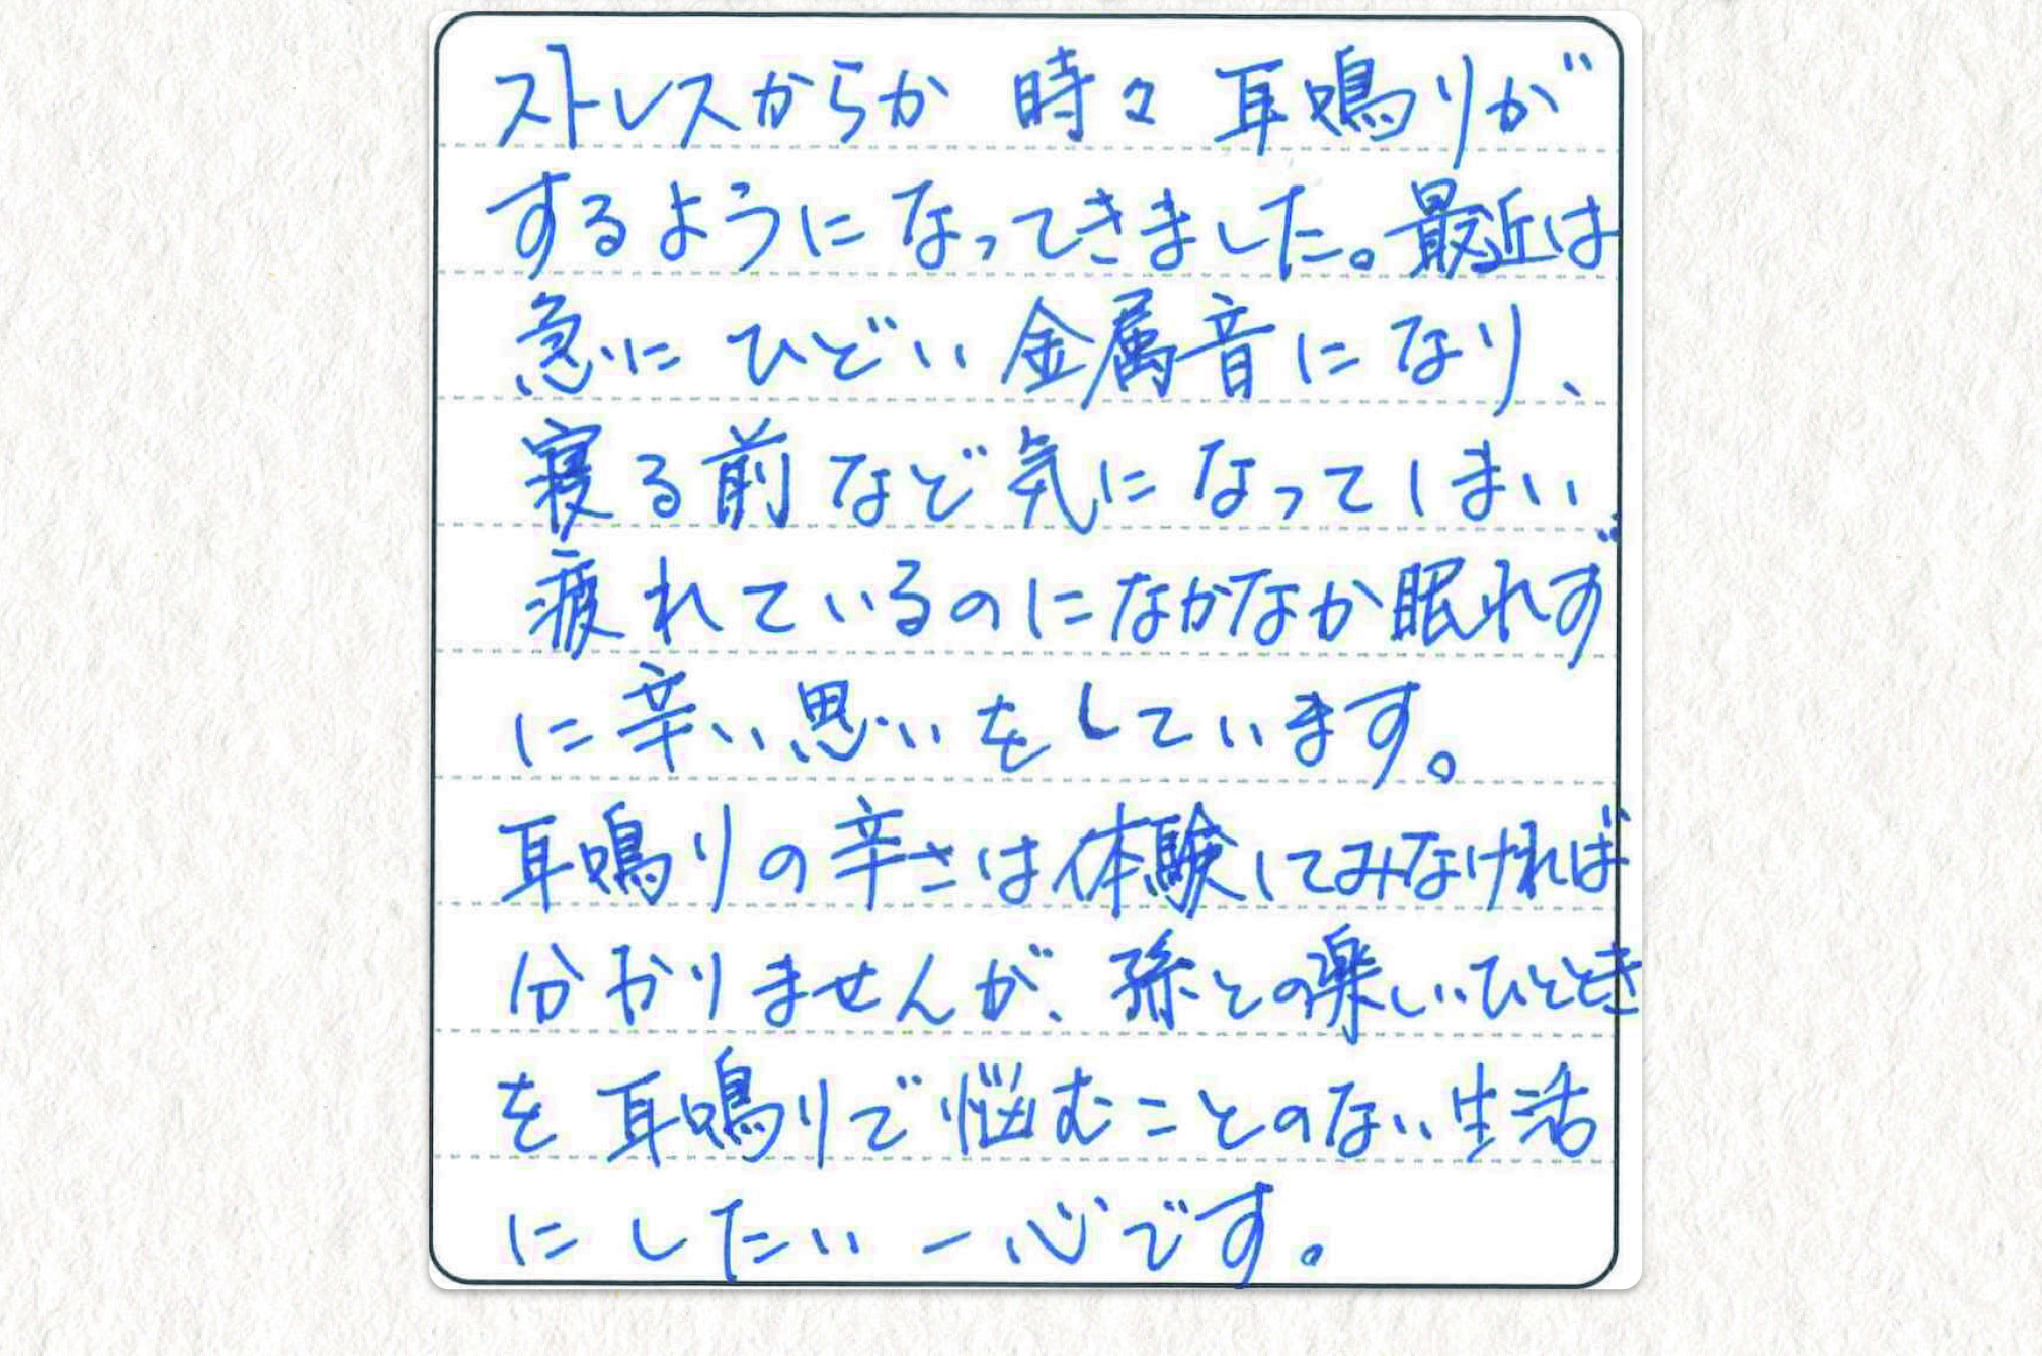 ストレスからか 時々 耳鳴りが
するようになってきました。最近は
急に ひどい 金属音になり、
寝る前など気になってしまい
疲れているのになかなか眠れず
に辛い思いをしています。
耳鳴りの辛さは体験してみなければ
分かりませんが、孫との楽しいひととき
を耳鳴りで悩むことのない生活
にしたい一心です。